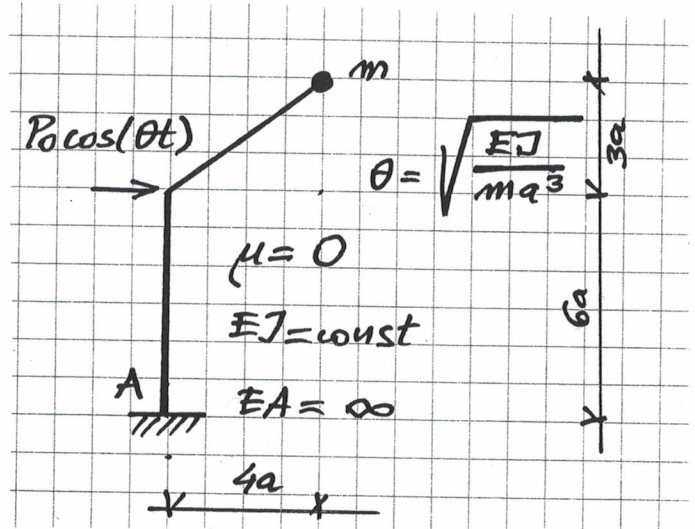 m
P₀cos(θt)
θ = √(EJ/ma³)
3a
μ = 0
6a
EJ=const
A
EA = ∞
4a